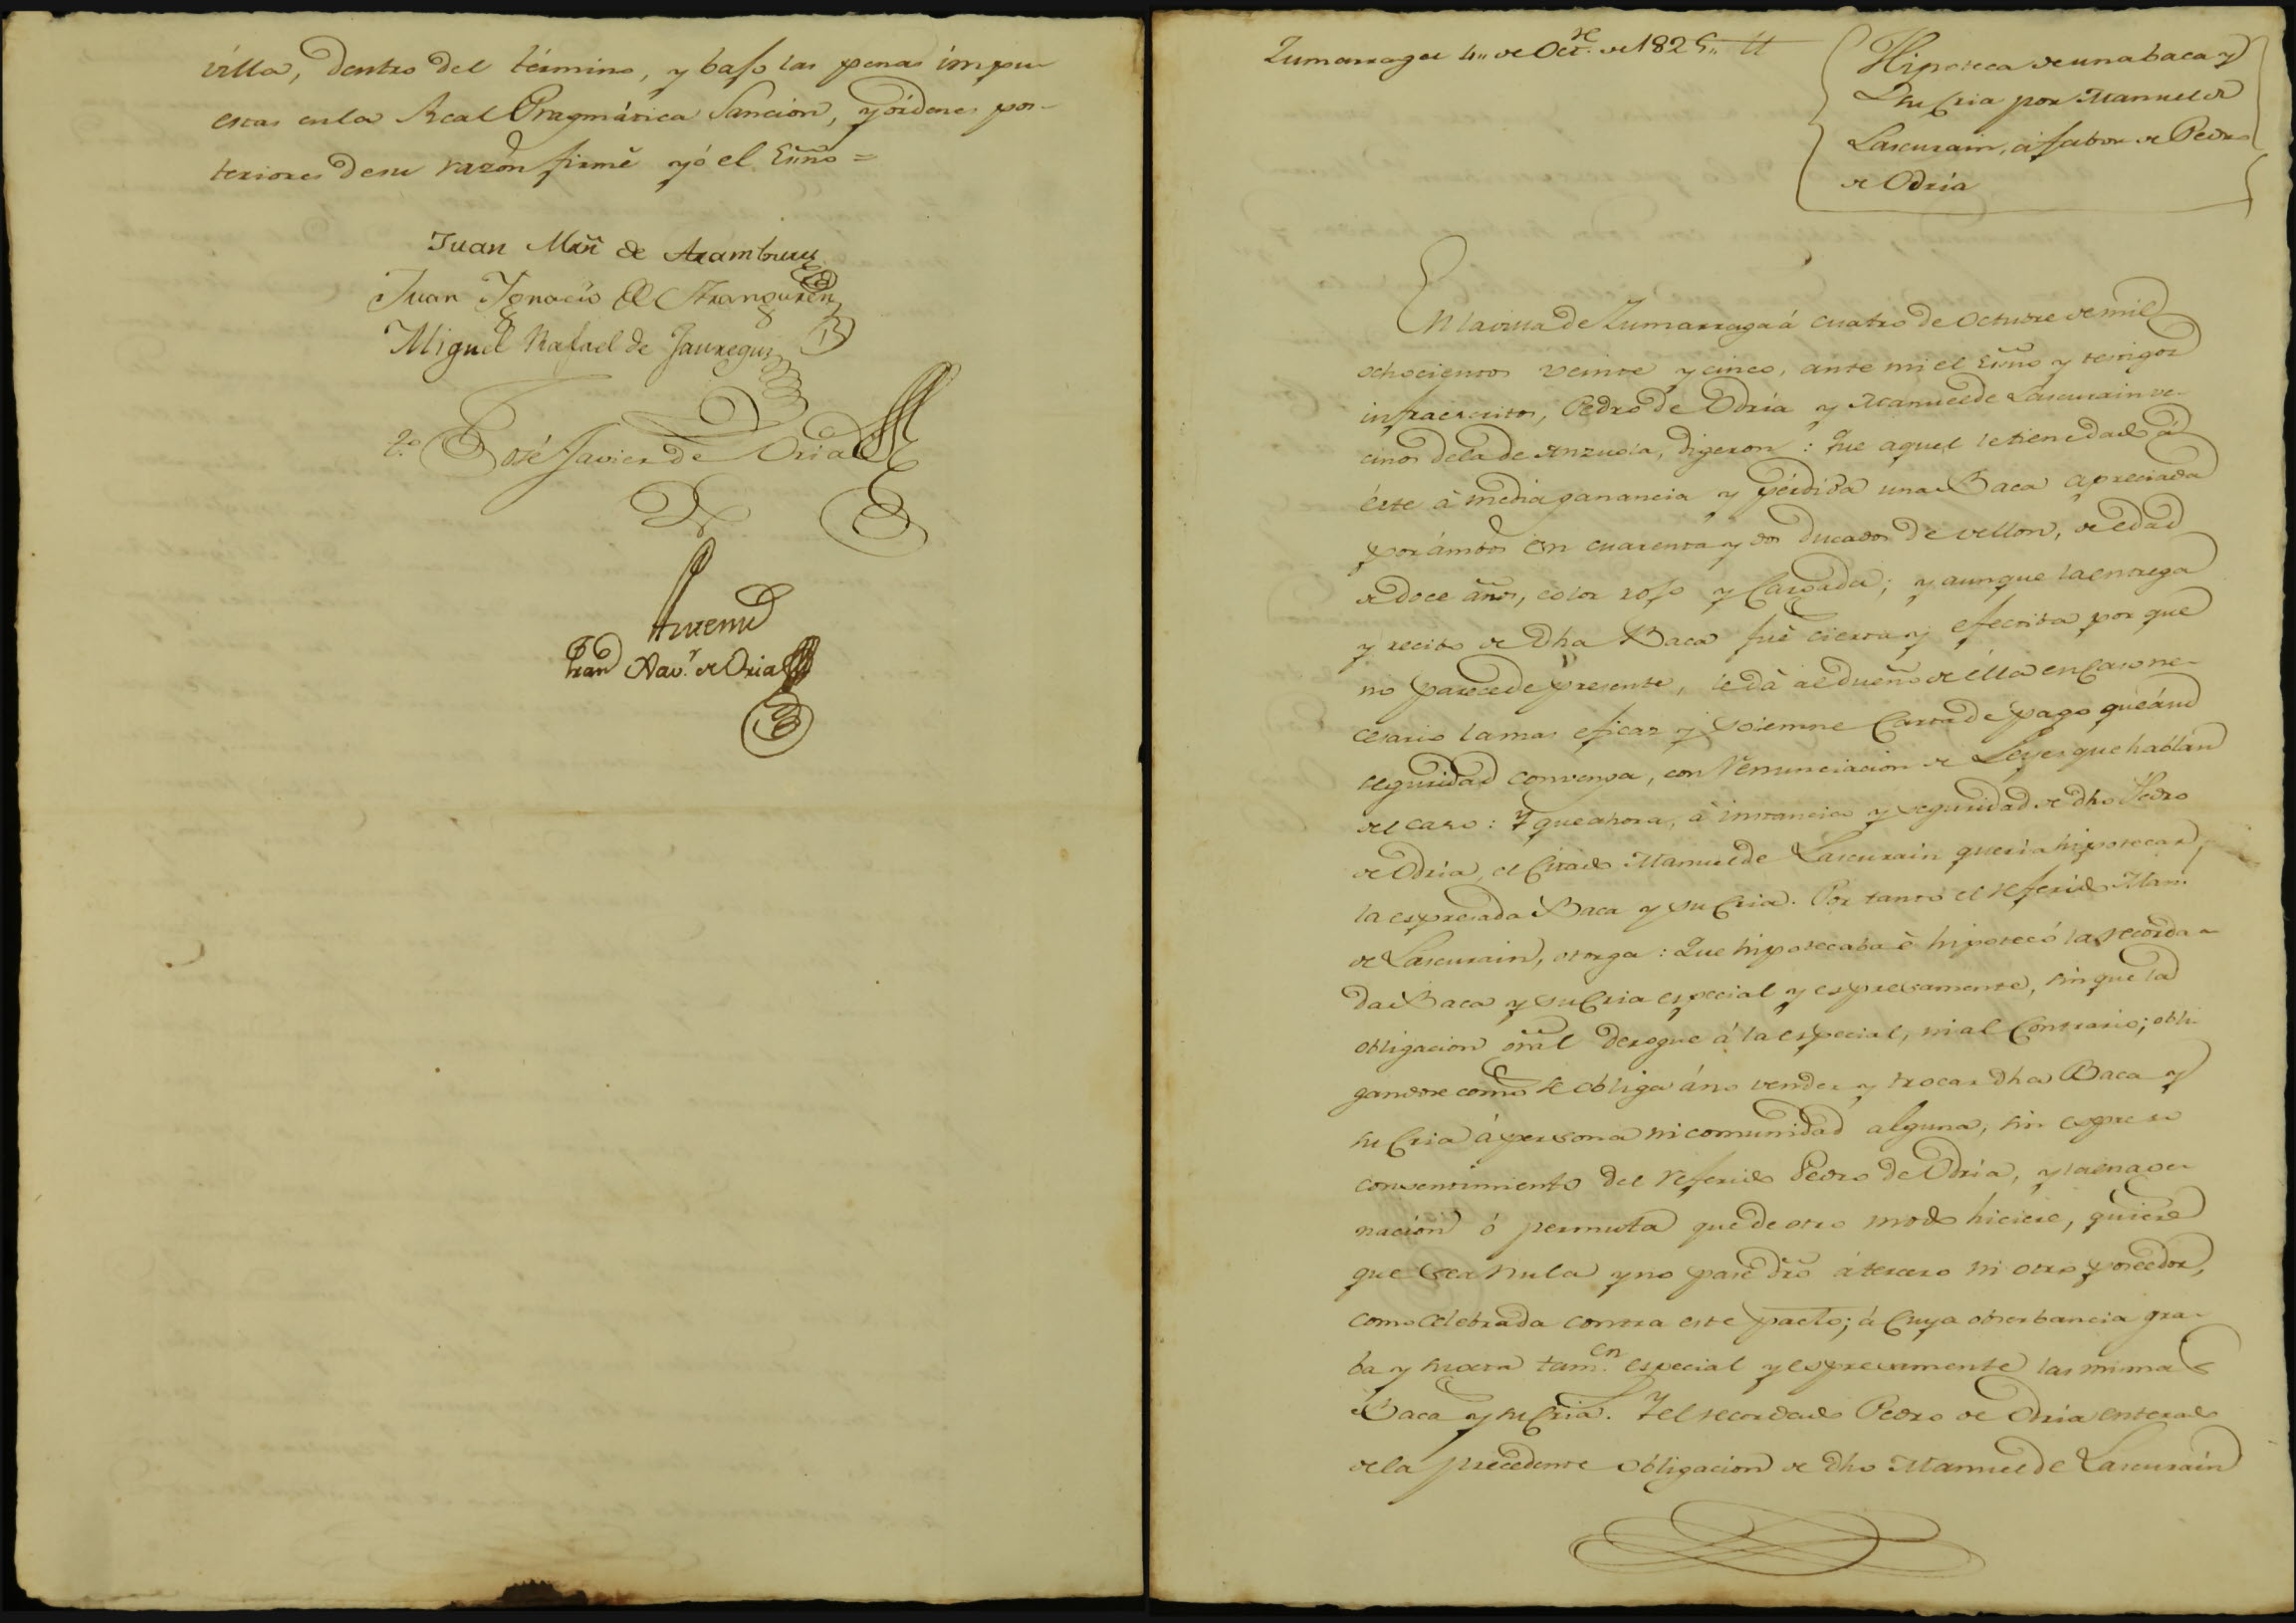 villa, dentro del término, y bajo las penas impu-
estas en la Real Pragmática Sancion, y órdenes pos-
teriores de su razon firmé yó el Essño =
Juan Mrñ de Aramburu
Juan Ygnacio de Aranguren
Miguel Rafael de Jauregui
José Javier de Oria
Antemi
Fran Xav.r de Oria
Zumarraga 4,, de Oct.re de 1825,,
Hipoteca de una baca y
su Cria por Manuel de
Lascurain, á fabor de Pedro
de Odria
En la villa de Zumarraga á cuatro de Octubre de mil
ochocientos veinte y cinco, ante mi el Essño y testigos
infraescritos, Pedro de Odria y Manuel de Lascurain ve-
cinos de la de Anzuola, digeron: Que aquel le tiene dado á
éste á media ganancia y pérdida una Baca apreciada
por ámbos en cuarenta y dos ducados de vellon, de edad
de doce años, color rojo y Cargada; y aunque la entrega
y recibo de dha Baca fué cierta y efectiba por que
no parece de presente, le dá al dueño de élla en Caso ne-
cesario la mas eficaz y solemne Carta de pago que á su
seguridad convenga, con renunciacion de Leyes que hablan
del caso: Y que ahora, á instancia y seguridad de dho Pedro
de Odria, el Citado Manuel de Lascurain queria hipotecar,
la espresada Baca y su Cria. Por tanto el referido Man.
de Lascurain, otorga: Que hipotecaba é hipotecó la recorda-
da Baca y su Cria especial y espresamente, sin que la
obligacion gral derogue á la especial, ni al Contrario; obli-
gandose como se obliga á no vender y trocar dha Baca y
su Cria á persona ni comunidad alguna, sin espreso
consentimiento del referido Pedro de Odria, y la enage-
nacion ó permuta que de otro modo hiciere, quiere
que sea nula y no pase dro á tercero ni otro poseedor,
como celebrada contra este pacto; á Cuya obserbancia gra-
ba y sugeta tam.en especial y espresamente las misma
Baca y su Cria. Y el recordado Pedro de Odria enterado
de la precedente obligacion de dho Manuel de Lascurain